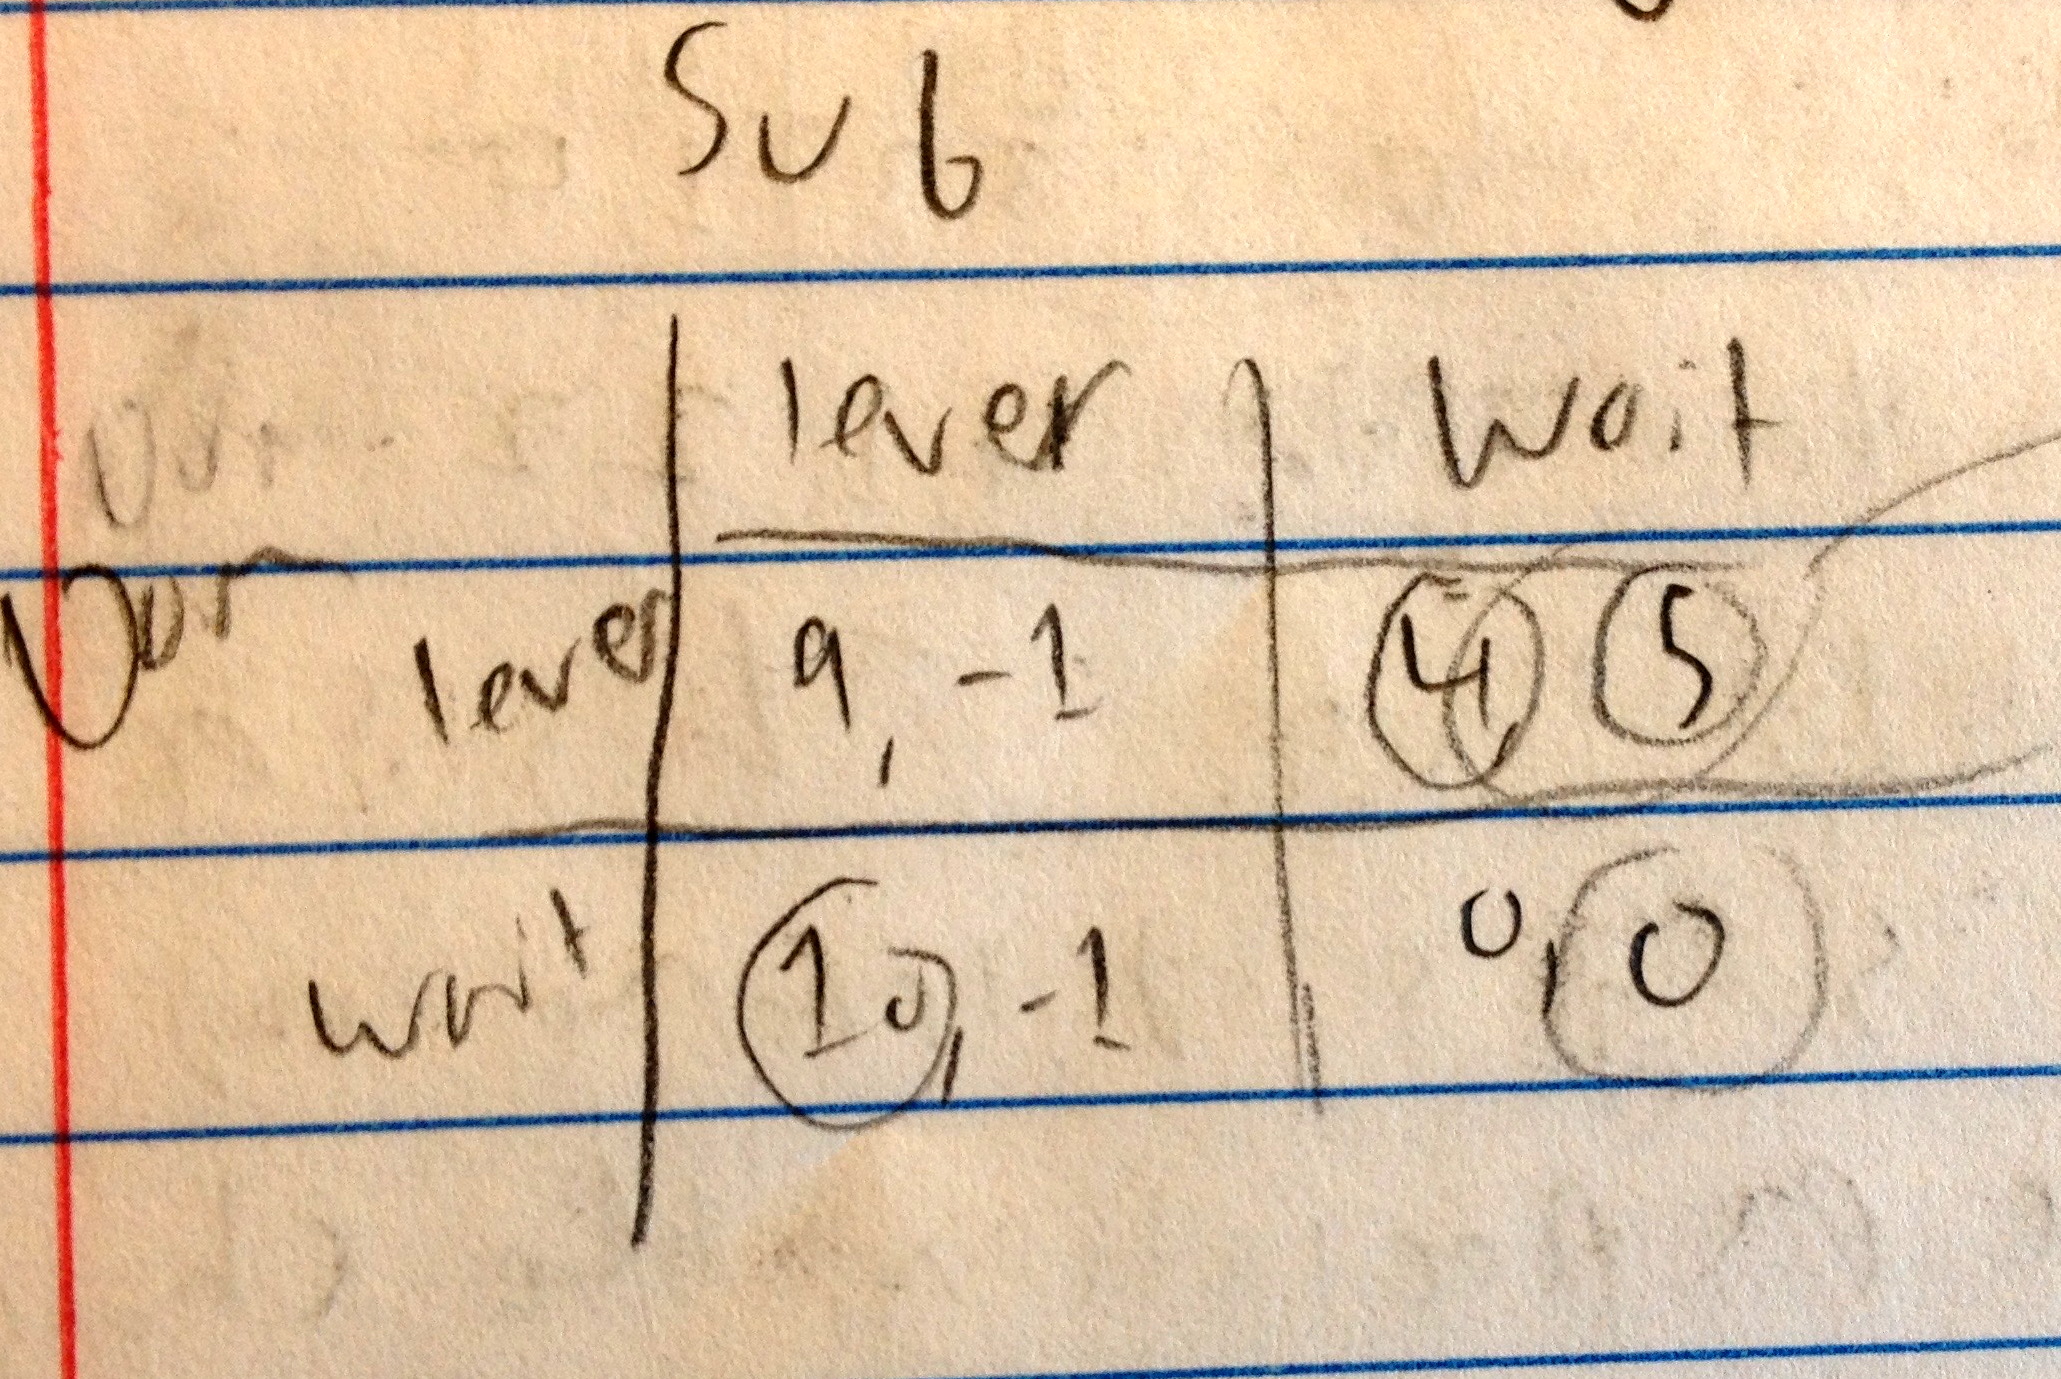 Sub
lever wait
Dom lever 9, -1 4 5
wait 10, -1 0, 0